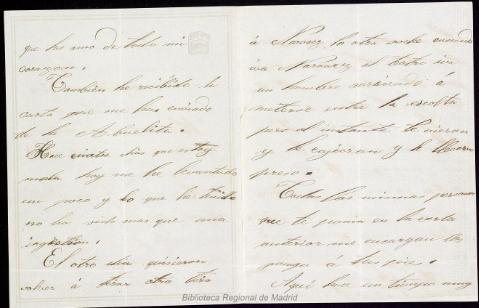 que ha uno de todo mi
corazon.
Tambien he recibido la
carta que me has enviado
de la Abuelita.
Hace cuatro dias que estoy
mala hoy me he levantado
un poco y lo que ha tenido
no ha sido mas que una
El otro dia quisieron
volver á tirar otro tiro
á Narvaez la otra noche cuando
iba Narvaez al teatro iba
un hombre
meterse entre la escolta
pero al instante le vieron
y le cojieron y le llevaron
preso.
Todas las mismas personas
que te ponia en la carta
anterior me encargan te
ponga á tus pies.
Aqui hace un tiempo muy
Biblioteca Regional de Madrid